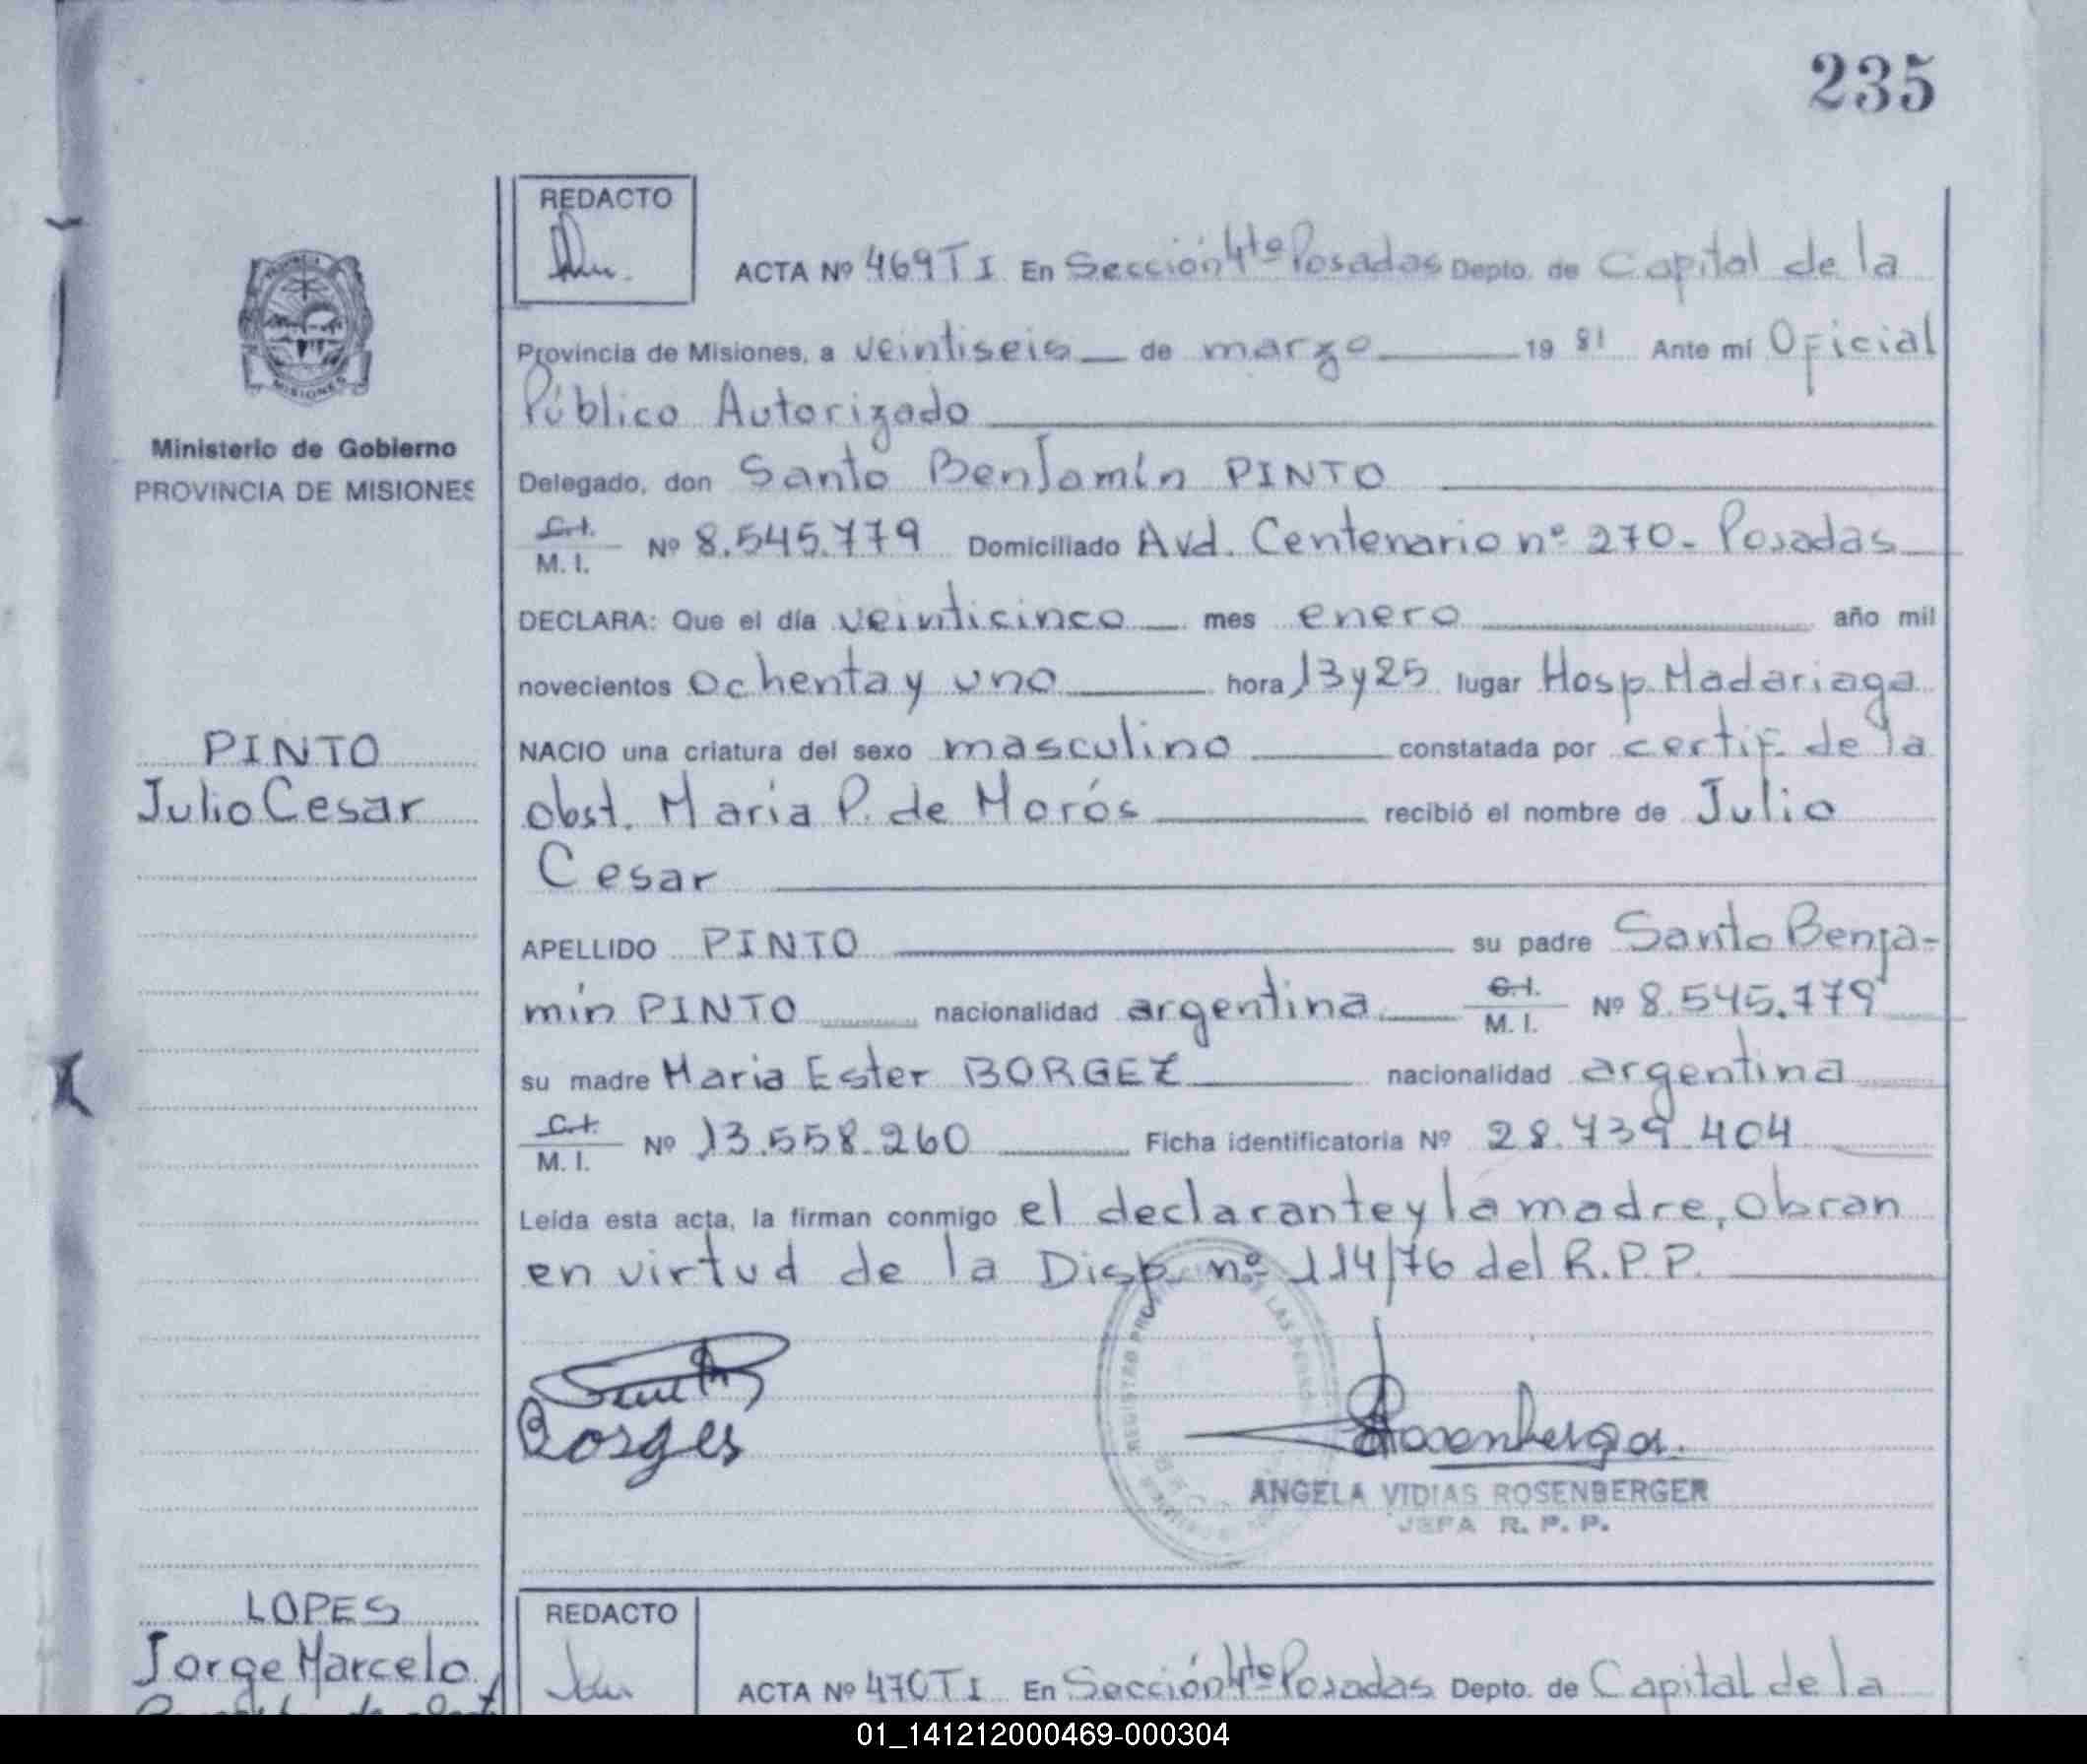 235
REDACTO
ACTA Nº 469 T I En Sección 4ta Posadas Depto. de Capital de la
Provincia de Misiones, a veintiseis de marzo 19 81 Ante mí Oficial
Público Autorizado
Ministerio de Gobierno
PROVINCIA DE MISIONES
Delegado, don Santo Benjamín PINTO
C.I.
M. I. Nº 8.545.779 Domiciliado Avd. Centenario nº 270- Posadas
DECLARA: Que el día veinticinco mes enero año mil
novecientos ochenta y uno hora 13 y 25 lugar Hosp. Madariaga
PINTO
NACIO una criatura del sexo masculino constatada por certif. de la
Julio Cesar
obst. Maria P. de Morós recibió el nombre de Julio
Cesar
APELLIDO PINTO su padre Santo Benja-
mín PINTO nacionalidad argentina C.I.
M. I. Nº 8.545.779
su madre Maria Ester BORGEZ nacionalidad argentina
C.I.
M. I. Nº 13.558.260 Ficha identificatoria Nº 28.739.404
Leída esta acta, la firman conmigo el declarante y la madre, obran
en virtud de la Disp. nº 114/76 del R.P.P.
Borges
Rosenberger
ANGELA VIDIAS ROSENBERGER
JEFA R. P. P.
LOPES
REDACTO
Jorge Marcelo
ACTA Nº 470 T I En Sección 4ta Posadas Depto. de Capital de la
01_141212000469-000304